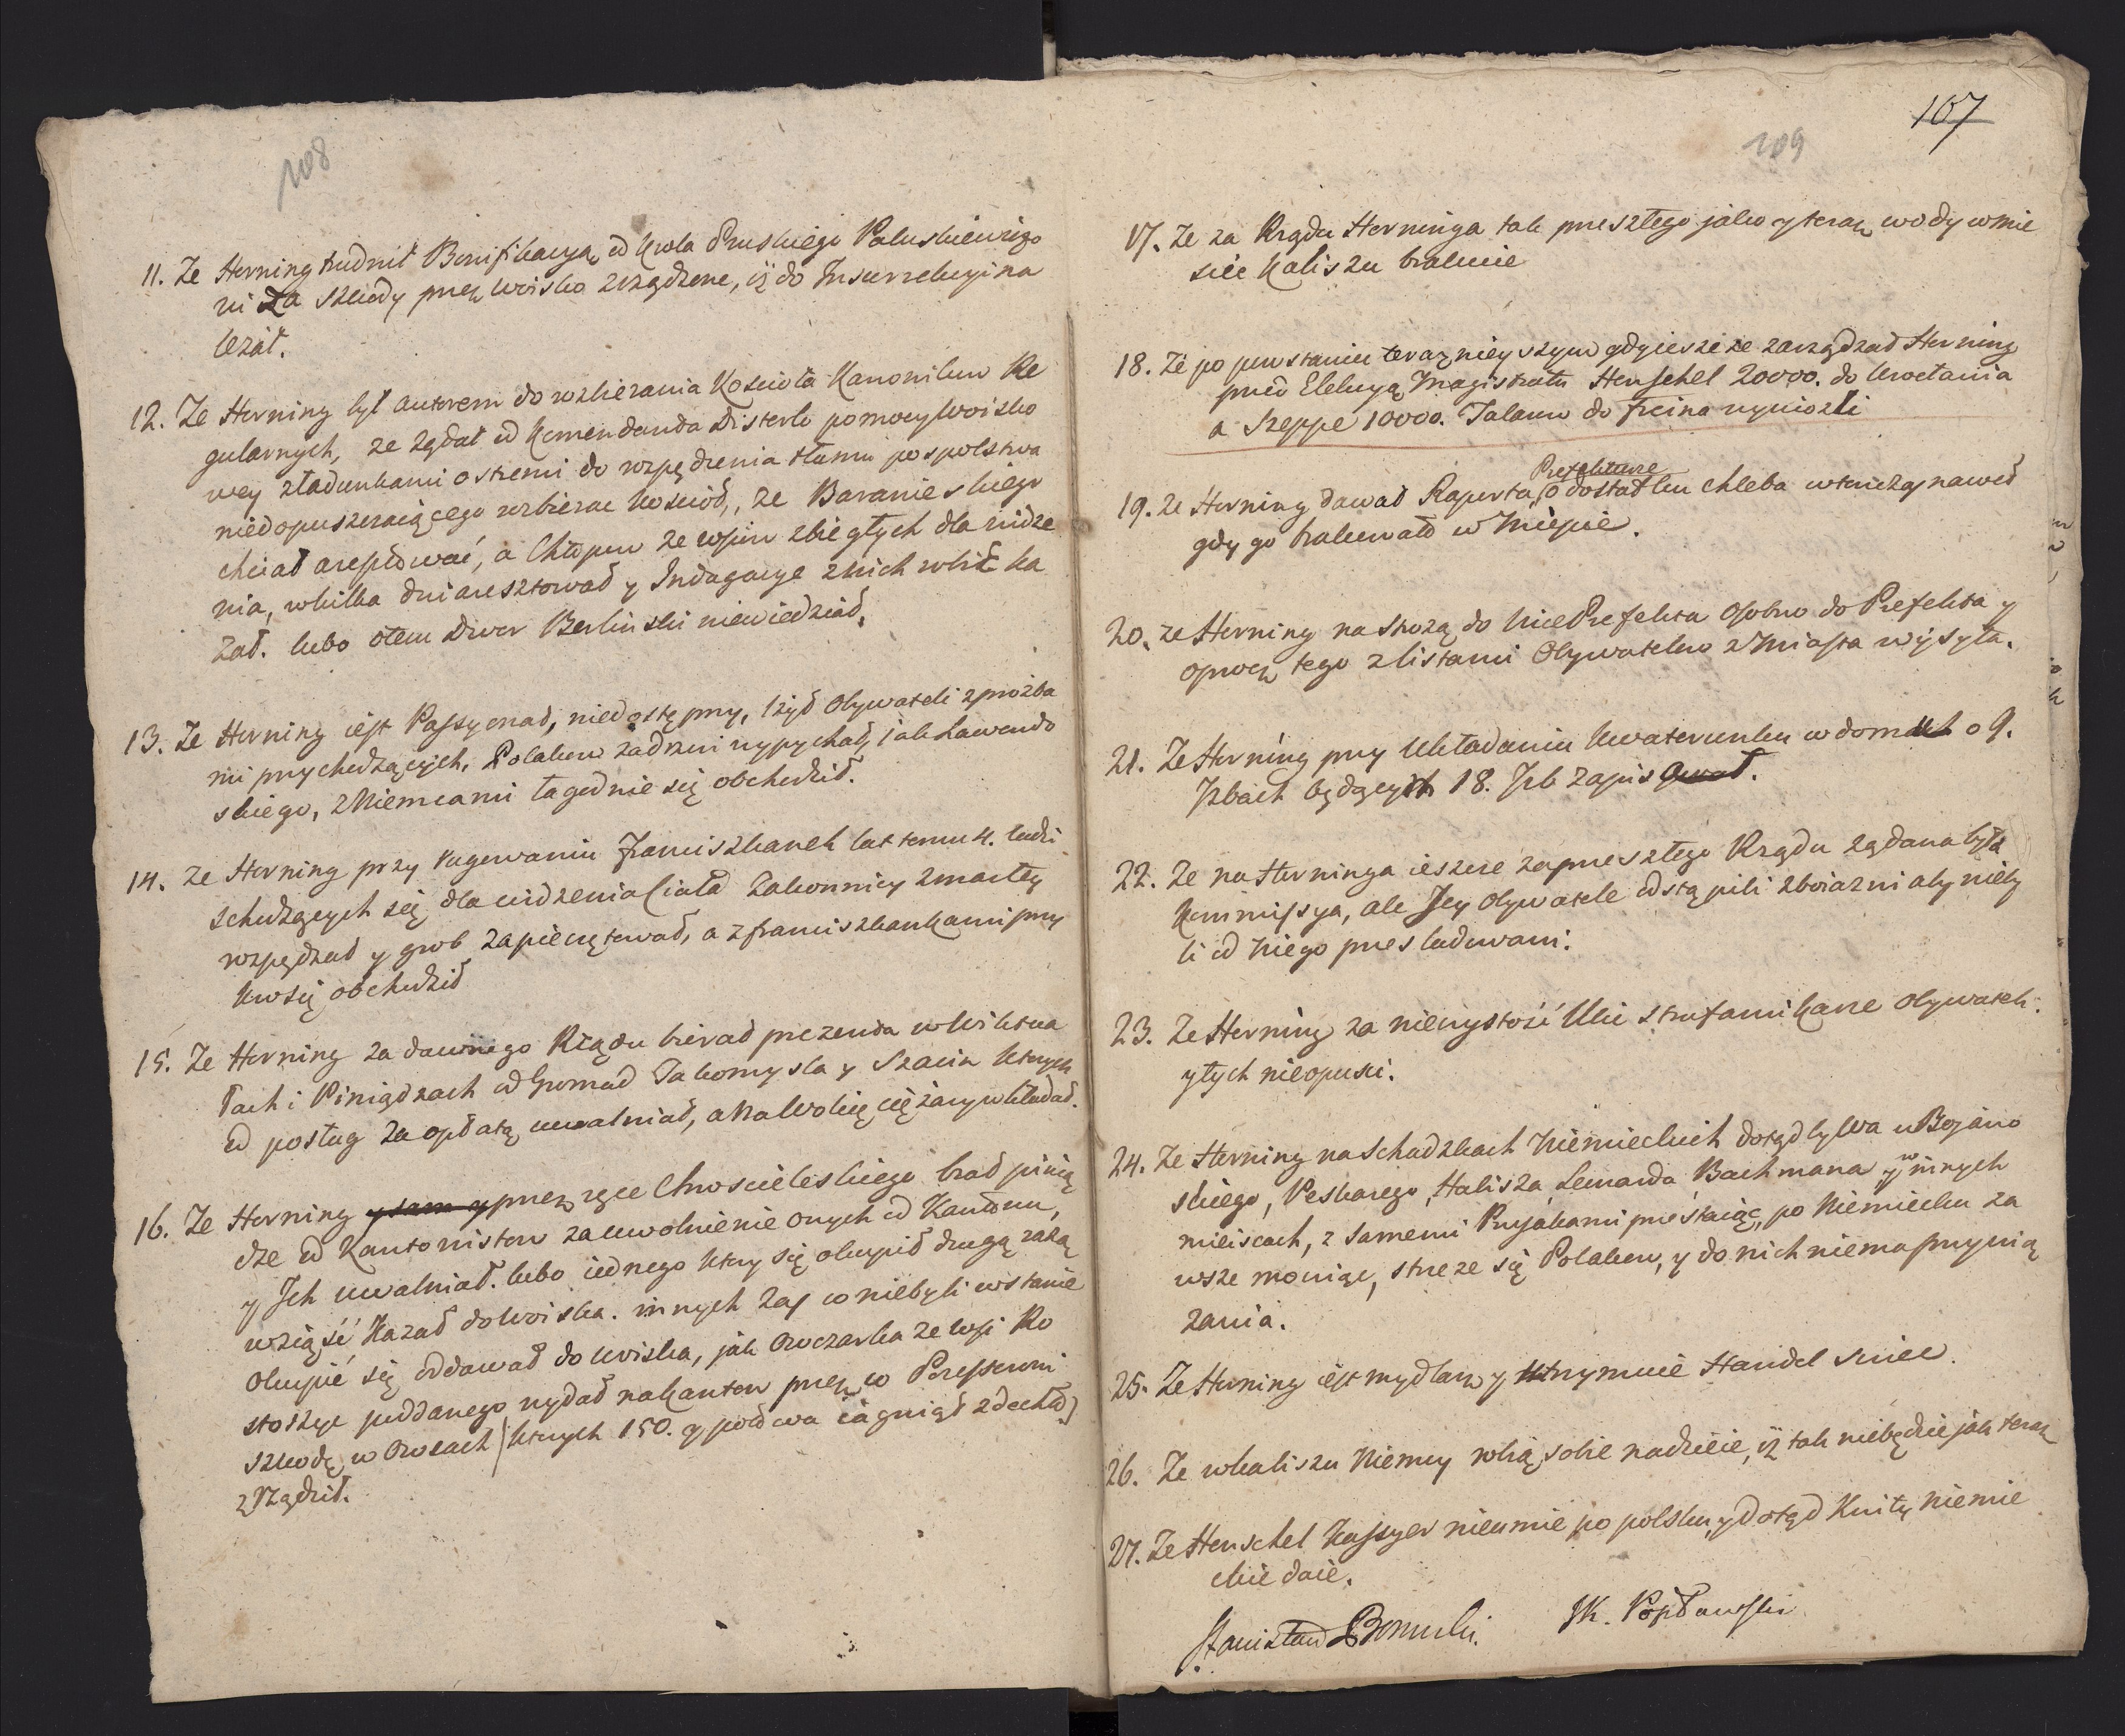 108
11. Że Herning trudnił Bonifikacyą od Krola Pruskiego Paluskiewiczo
wi za szkody przez woisko zrządzone, iż do Insurrekcyi na
leżał.
12. Że Herning był autorem do rozbierania Kościoła Kanonikow Re
gularnych, że żądał od Komendanda Disterlo pomocy Woisko
wey z ładunkami ostremi do rozpędzenia tłumu pospolstwa
niedopuszczaiącego rozbierac kościoł, że Baranieskiego
chciał aresztować, a Chłopow ze wsiow zbiegłych dla widze
nia, w kilka dni aresztował y Indagacye z nich robić ka
zał. lubo o tem Dwor Berlinski niewiedział.
13. Że Herning iest Passyonad, niedostępny, lżył Obywateli z prozba
mi przychodzących, Polakow za drzwi wypychał, iak Lawendo
skiego, z Niemcami łagodnie się obchodził.
14. Że Herning przy rugowaniu Franciszkanek lat temu 4. ludzi
schodzących się dla widzenia Ciała Zakonnicy zmarłey
rozpędzał y grob zapieczętował, a z franciszkankami przy
kro się obchodził
15. Że Herning za dawnego Rządu bierał prezenda w Wiktua
łach i Piniądzach od Gromad Tykomysla y Szacin ktorych
od posług za opłatą uwalniał, a na Wolicę ciężary wkładał.
16. Że Herning y sam y przez ręce Chroscieleskiego brał pinią
dze od Kantonistow za uwolnienie onych od Kantonu,
y Ich uwalniał. lubo iednego ktory się okupił drugą razą
wziąść kazał do Woiska. innych zaś co niebyli w stanie
okupić się oddawał do woiska, jak Owczarka ze wsi Ko
stoszye poddanego wydał na kanton przez co Possessorowi
szkodę w Owcach (ktorych 150. y połowa iagniąt zdechło)
zrządził.
107
109
17. Że za Rządu Herninga tak przeszłego jako y teraz wody w mie
scie Kaliszu brakuie
18. Że po powstaniu teraznieyszym gdy ieszcze zarządzał Herning
przed Elekcyą Magistratu Henschel 20000. do Wrocławia
a Szeppe 10000. Talarow do Freina wywiozli
Prefekturze
19. Że Herning dawał Raporta o dostatku chleba wtenczas nawed
gdy go brakowało w Miescie.
20. że Herning na strożą do Vice Prefekta osobno do Prefekta y
oprocz tego z listami Obywatelow z Miasta wysyła.
21. Że Herning przy Układaniu Kwaterunku w domu o 9.
Izbach będących 18. Izb zapisował.
22. Że na Herninga ieszcze za przeszłego Rządu żądana była
Kommissya, ale Jey Obywatele odstąpili z boiazni aby nieby
li od niego przesladowani.
23. Że Herning za nieczystość Ulic strofami karze Obywateli
y tych nieopusci.
24. Że Herning na Schadzkach Niemieckich dotąd bywa u Bojano
skiego, Peskarego, Halisza, Lenarda Bachmana y w innych
mieiscach, z samemi Prusakami przestaiąc, po Niemiecku za
wsze mowiąc, strzeze się Polakow, y do nich niema przywią
zania.
25. Że Herning iest mydlarz y utrzymuie Handel swiec.
26. Że w Kaliszu Niemcy robią sobie nadzieie, iż tak niebędzie jak teraz
27. Że Henschel Kassyer nieumie po polsku, y dotąd Kwity niemie
ckie daie.
JK. Popławski